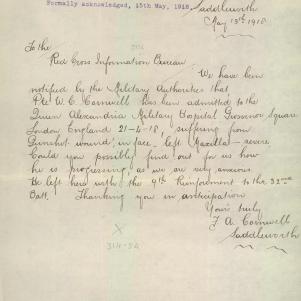 Formally acknowledged, 15th May, 1918.
Saddleworth
May 13th 1918
To the
Red Cross Information Bureau
We have been
notified by the Military Authorities that
Pte W. C. Cornwell has been admitted to the
Queen Alexandria Military Hospital Grosvenor Square
London England 21-4-18, suffering from
Gunshot wound, in face, left Maxilla - severe
Could you possibly find out for us how
he is progressing, as we are very anxious
He left here with the 9th Reinforcement to the 32nd
Batt. Thanking you in anticipation
Yours truly
F A. Cornwell
Saddleworth
X